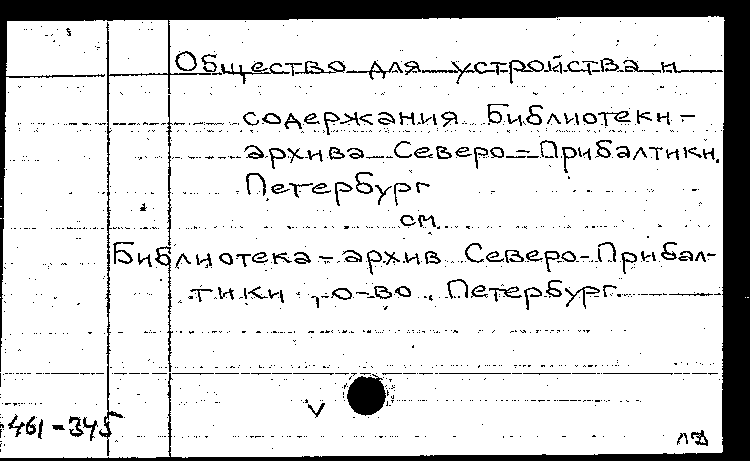 Общество для устройства и
содержания Библиотеки-
архива Северо-Прибалтики.
Петербург
см.
Библиотека-архив Северо-Прибал-
тики, о-во, Петербург.
461-345